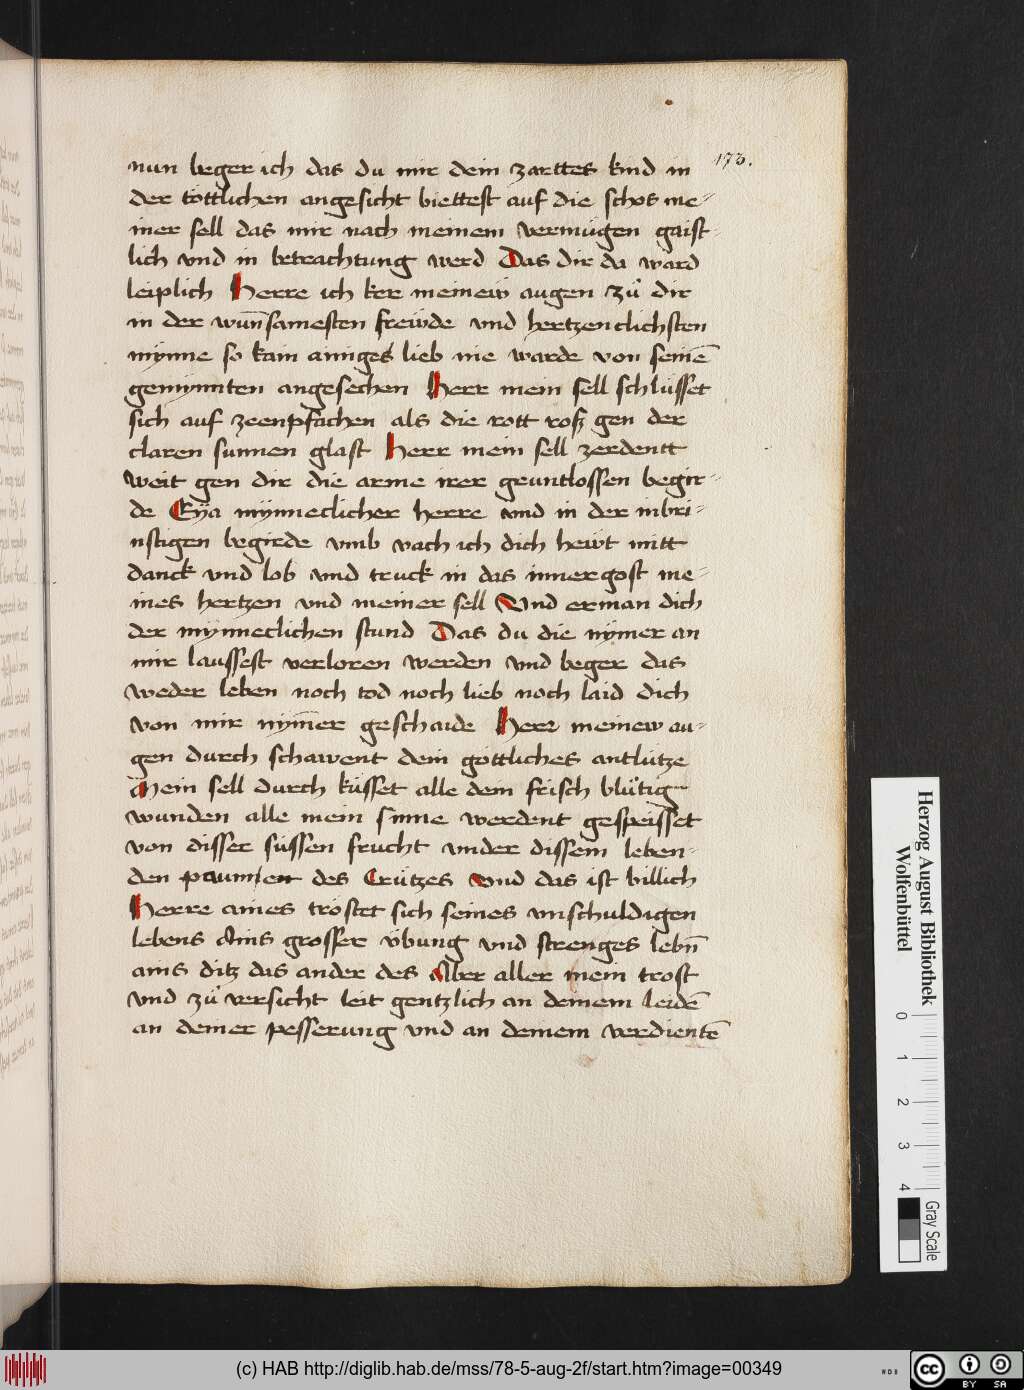 173.
nun beger ich das du mir dein zarttes kind in
der töttlichen angesicht biettest auf die schos me-
iner sell das mir nach meinem vermügen gaist-
lich vnd in betrachtung werd Das dir da ward
leiplich Herre ich ker meinew augen zů dir
in der wuñsamesten frewde vnd hertzenclichsten
mynne so kain ainiges lieb nie warde von seinē
gemynnten angesechen Herr mein sell schlüsset
sich auf zeenpfachen als die rott rosz gen der
claren sunnen glast Herr mein sell zerdentt
weit gen dir die arme irer gruntlossen begir-
de Eya mynneclicher herre vnd in der inbri-
nstigen begirde vmb vach ich dich hewt mitt
danck vnd lob vnd truck in das innergost me-
ines hertzen vnd meiner sell Vnd erman dich
der mynneclichen stund Das du die nymer an
mir laussest verloren werden vnd beger das
weder leben noch tod noch lieb noch laid dich
von mir nym̄er geschaide Herr meinew au-
gen durch schawent dein göttliches antlütze
Mein sell durch küsset alle dem frisch blůtig
wunden alle mein sinne werdent gespeisset
von disser süssen frucht vnder dissem leben-
den paumen des Crützes vnd das ist billich
Herre aines tröstet sich seines vnschuldigen
lebens Ains grosser übung vnd strenges lebñ
ains ditz das ander des Aber aller mein trost
vnd zů versicht leit gentzlich an deinem leidē
an deiner pesserung vnd an deinem verdientē
Herzog August Bibliothek
Wolfenbüttel
0 1 2 3 4
Gray Scale
(c) HAB http://diglib.hab.de/mss/78-5-aug-2f/start.htm?image=00349
WDB
cc BY SA